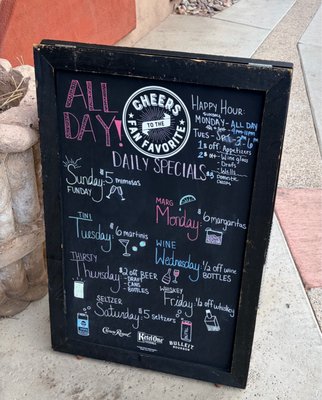 ALL
DAY!
CHEERS
TO THE
FAN FAVORITE
DAILY SPECIALS
HAPPY HOUR:
SUNDAY
MONDAY - ALL DAY
$1 off: Appetizers
Wine glass
Drafts
Wells
Sunday
FUNDAY
$5 mimosas
MARG
Monday
$6 margaritas
TINI
Tuesday
$6 martinis
WINE
Wednesday
1/2 off wine
BOTTLES
THIRSTY
Thursday
$2 off BEER
- DRAFT
- CANS
- BOTTLES
WHISKEY
Friday
1/2 off whiskey
SELTZER
Saturday
$5 seltzers
Crown Royal
Ketel One
BULLEIT